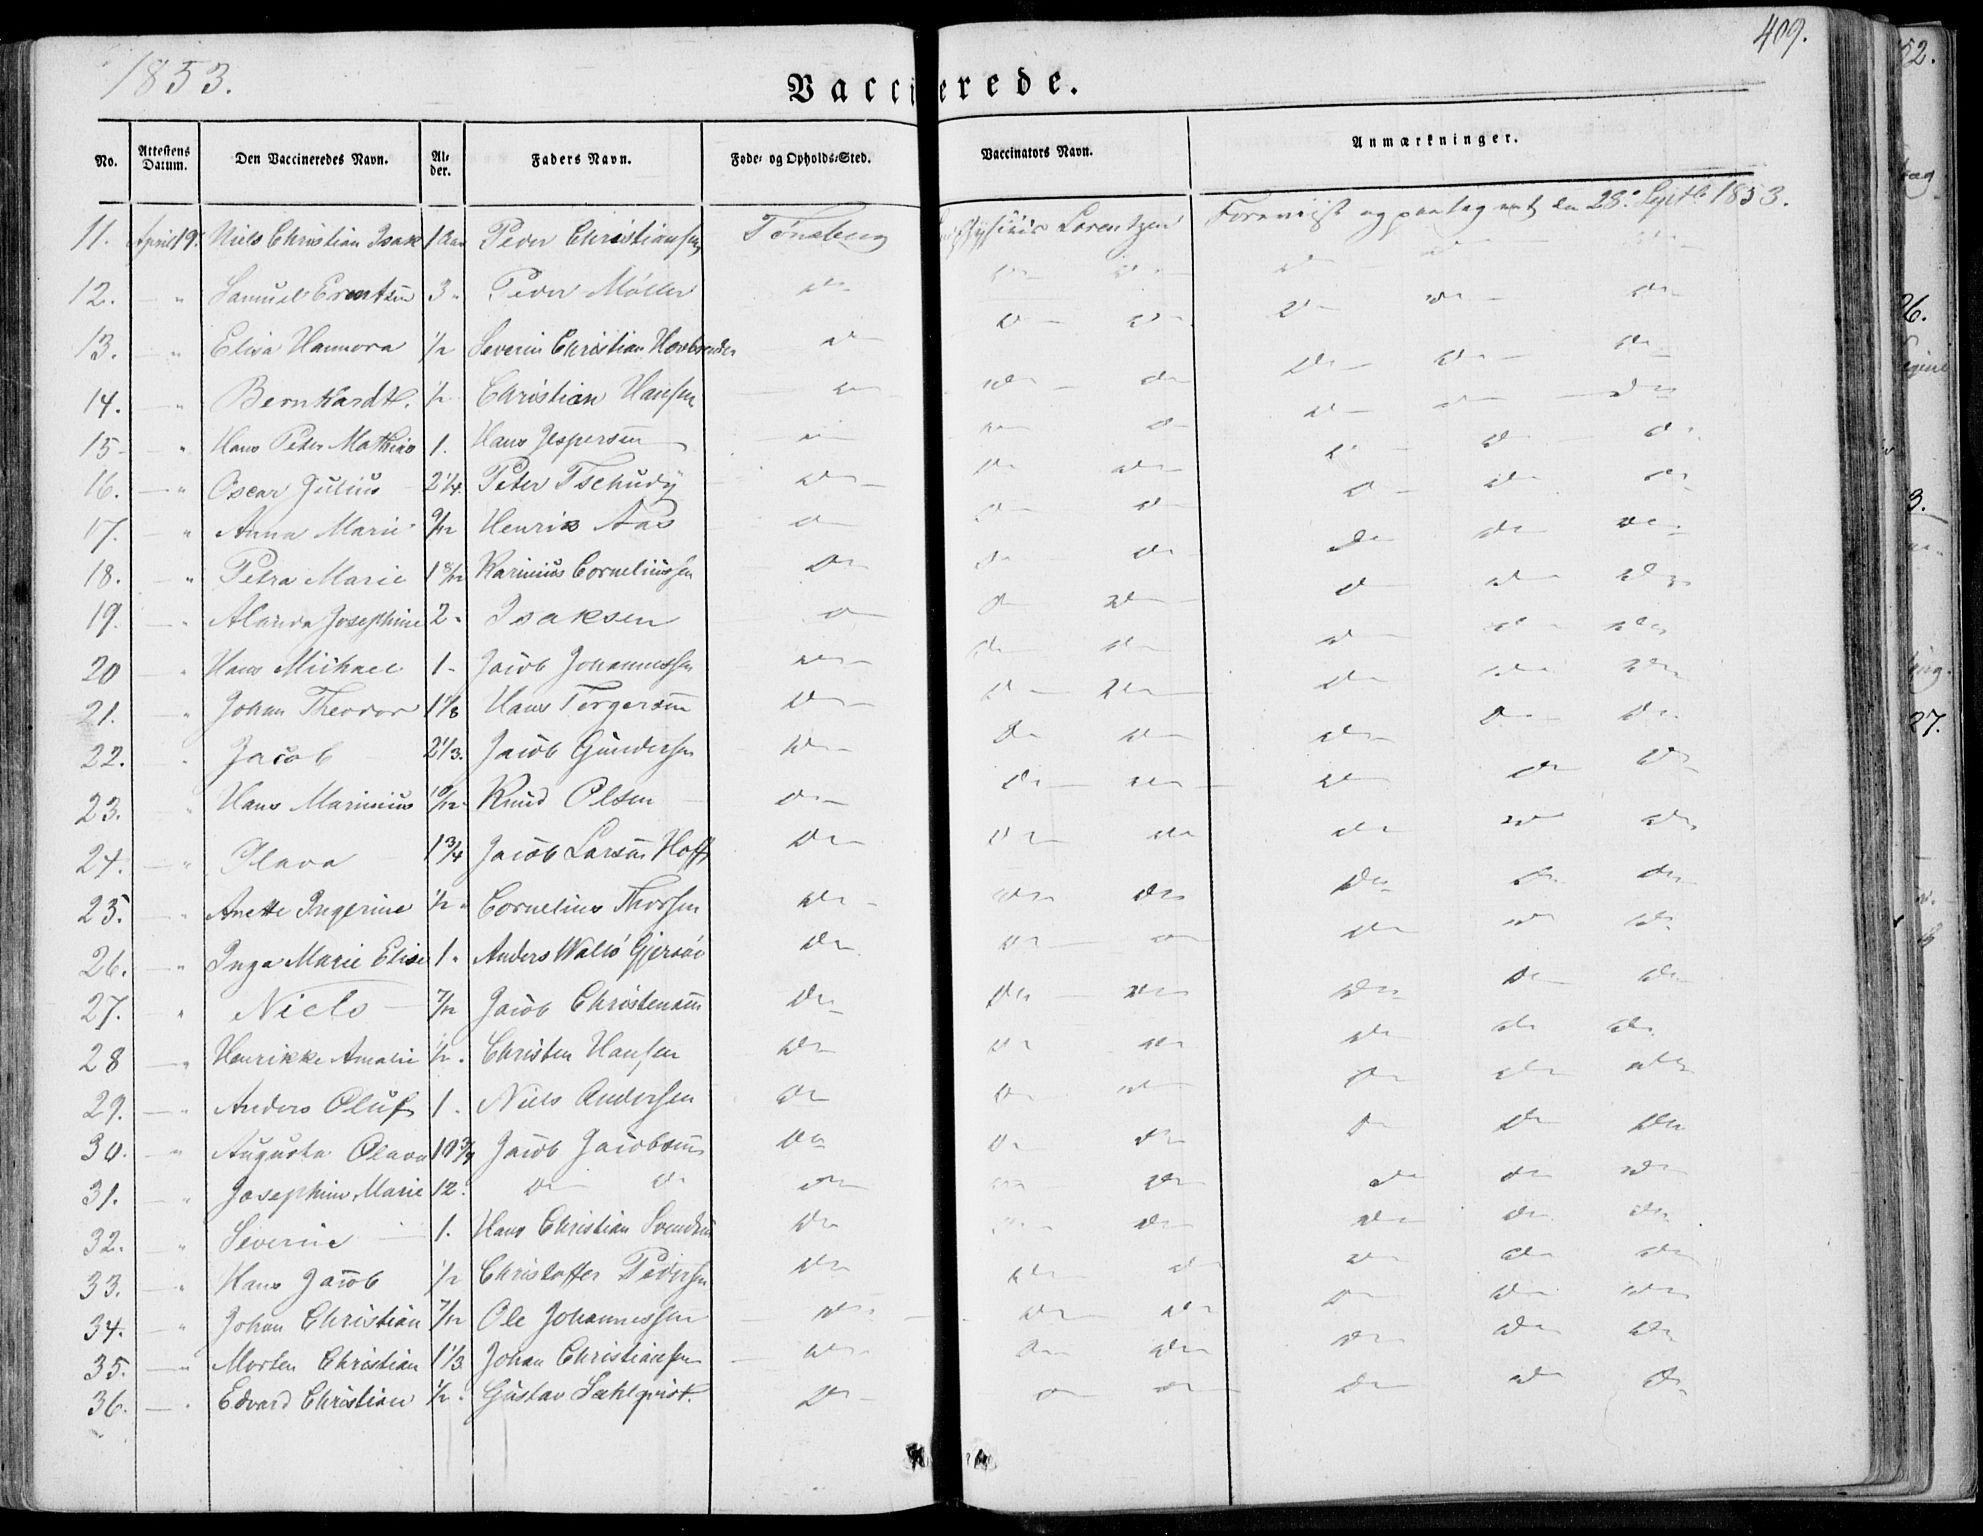 1853.
409.
Vaccinerede.
No. Attestens Datum. Den Vaccineredes Navn. Alder. Faders Navn. Føde- og Opholds-Sted. Vaccinators Navn. Anmærkninger.
11. April 19. Niels Christian Isak 1 Aar Peder Christiansen Tønsberg Lorentzen Foreviist og paategnet den 28. Septb 1853.
12. — " Samuel 3 " Peder Møller do do do do do do
13. — " Elisa Hannora 1/2 Severin Christian do do do do do do
14. — " Bernhardt. 1/2 Christian Hansen do do do do do do
15 — " Hans Peter Mathias 1. Hans Jespersen do do do do do do
16. — " Oscar Julius 2 1/4. Peter Tschudy do do do do do do
17. — " Anna Marie 9/12 Henrik Aas do do do do do do
18. — " Petra Marie 1 8/12 Karinius Corneliussen do do do do do do
19. — " Josephine 2 " Isaksen do do do do do do
20 — " Hans Michael 1 " Jacob Johannessen do do do do do do
21. — " Johan Theodor 1 1/8 Hans Torgersen do do do do do do
22. — " Jacob 2 1/3. Jacob Gundersen do do do do do do
23. — " Hans Marinius 10/12 Knud Olsen do do do do do do
24. — " Olava 1 3/4 Jacob Larsen Hoff do do do do do do
25. — " Anette Ingerine 1/2 " Cornelius Thorsen do do do do do do
26. — " Inga Marie Elise 1 " Anders Wallø do do do do do do
27. — " Niels 7/12 Jacob Christensen do do do do do do
28 — " Henrikke Amalie 1/2 . Christen Hansen do do do do do do
29. — " Anders Oluf 1 . Niels Andersen do do do do do do
30. — " Augusta Olava 10 3/4 Jacob Jacobsen do do do do do do
31. — " Josephine Marie 12. do do do do do do do do
32. — " Severine 1. Hans Christian Svendsen do do do do do do
33. — " Hans Jacob 1/2 Christoffer Pedersen do do do do do do
34. — " Johan Christian 7/12 Ole Johannessen do do do do do do
35. — " Morten Christian 1 1/3 Johan Christiansen do do do do do do
36. — " Edvard Christian 1/2 . Gustav do do do do do do